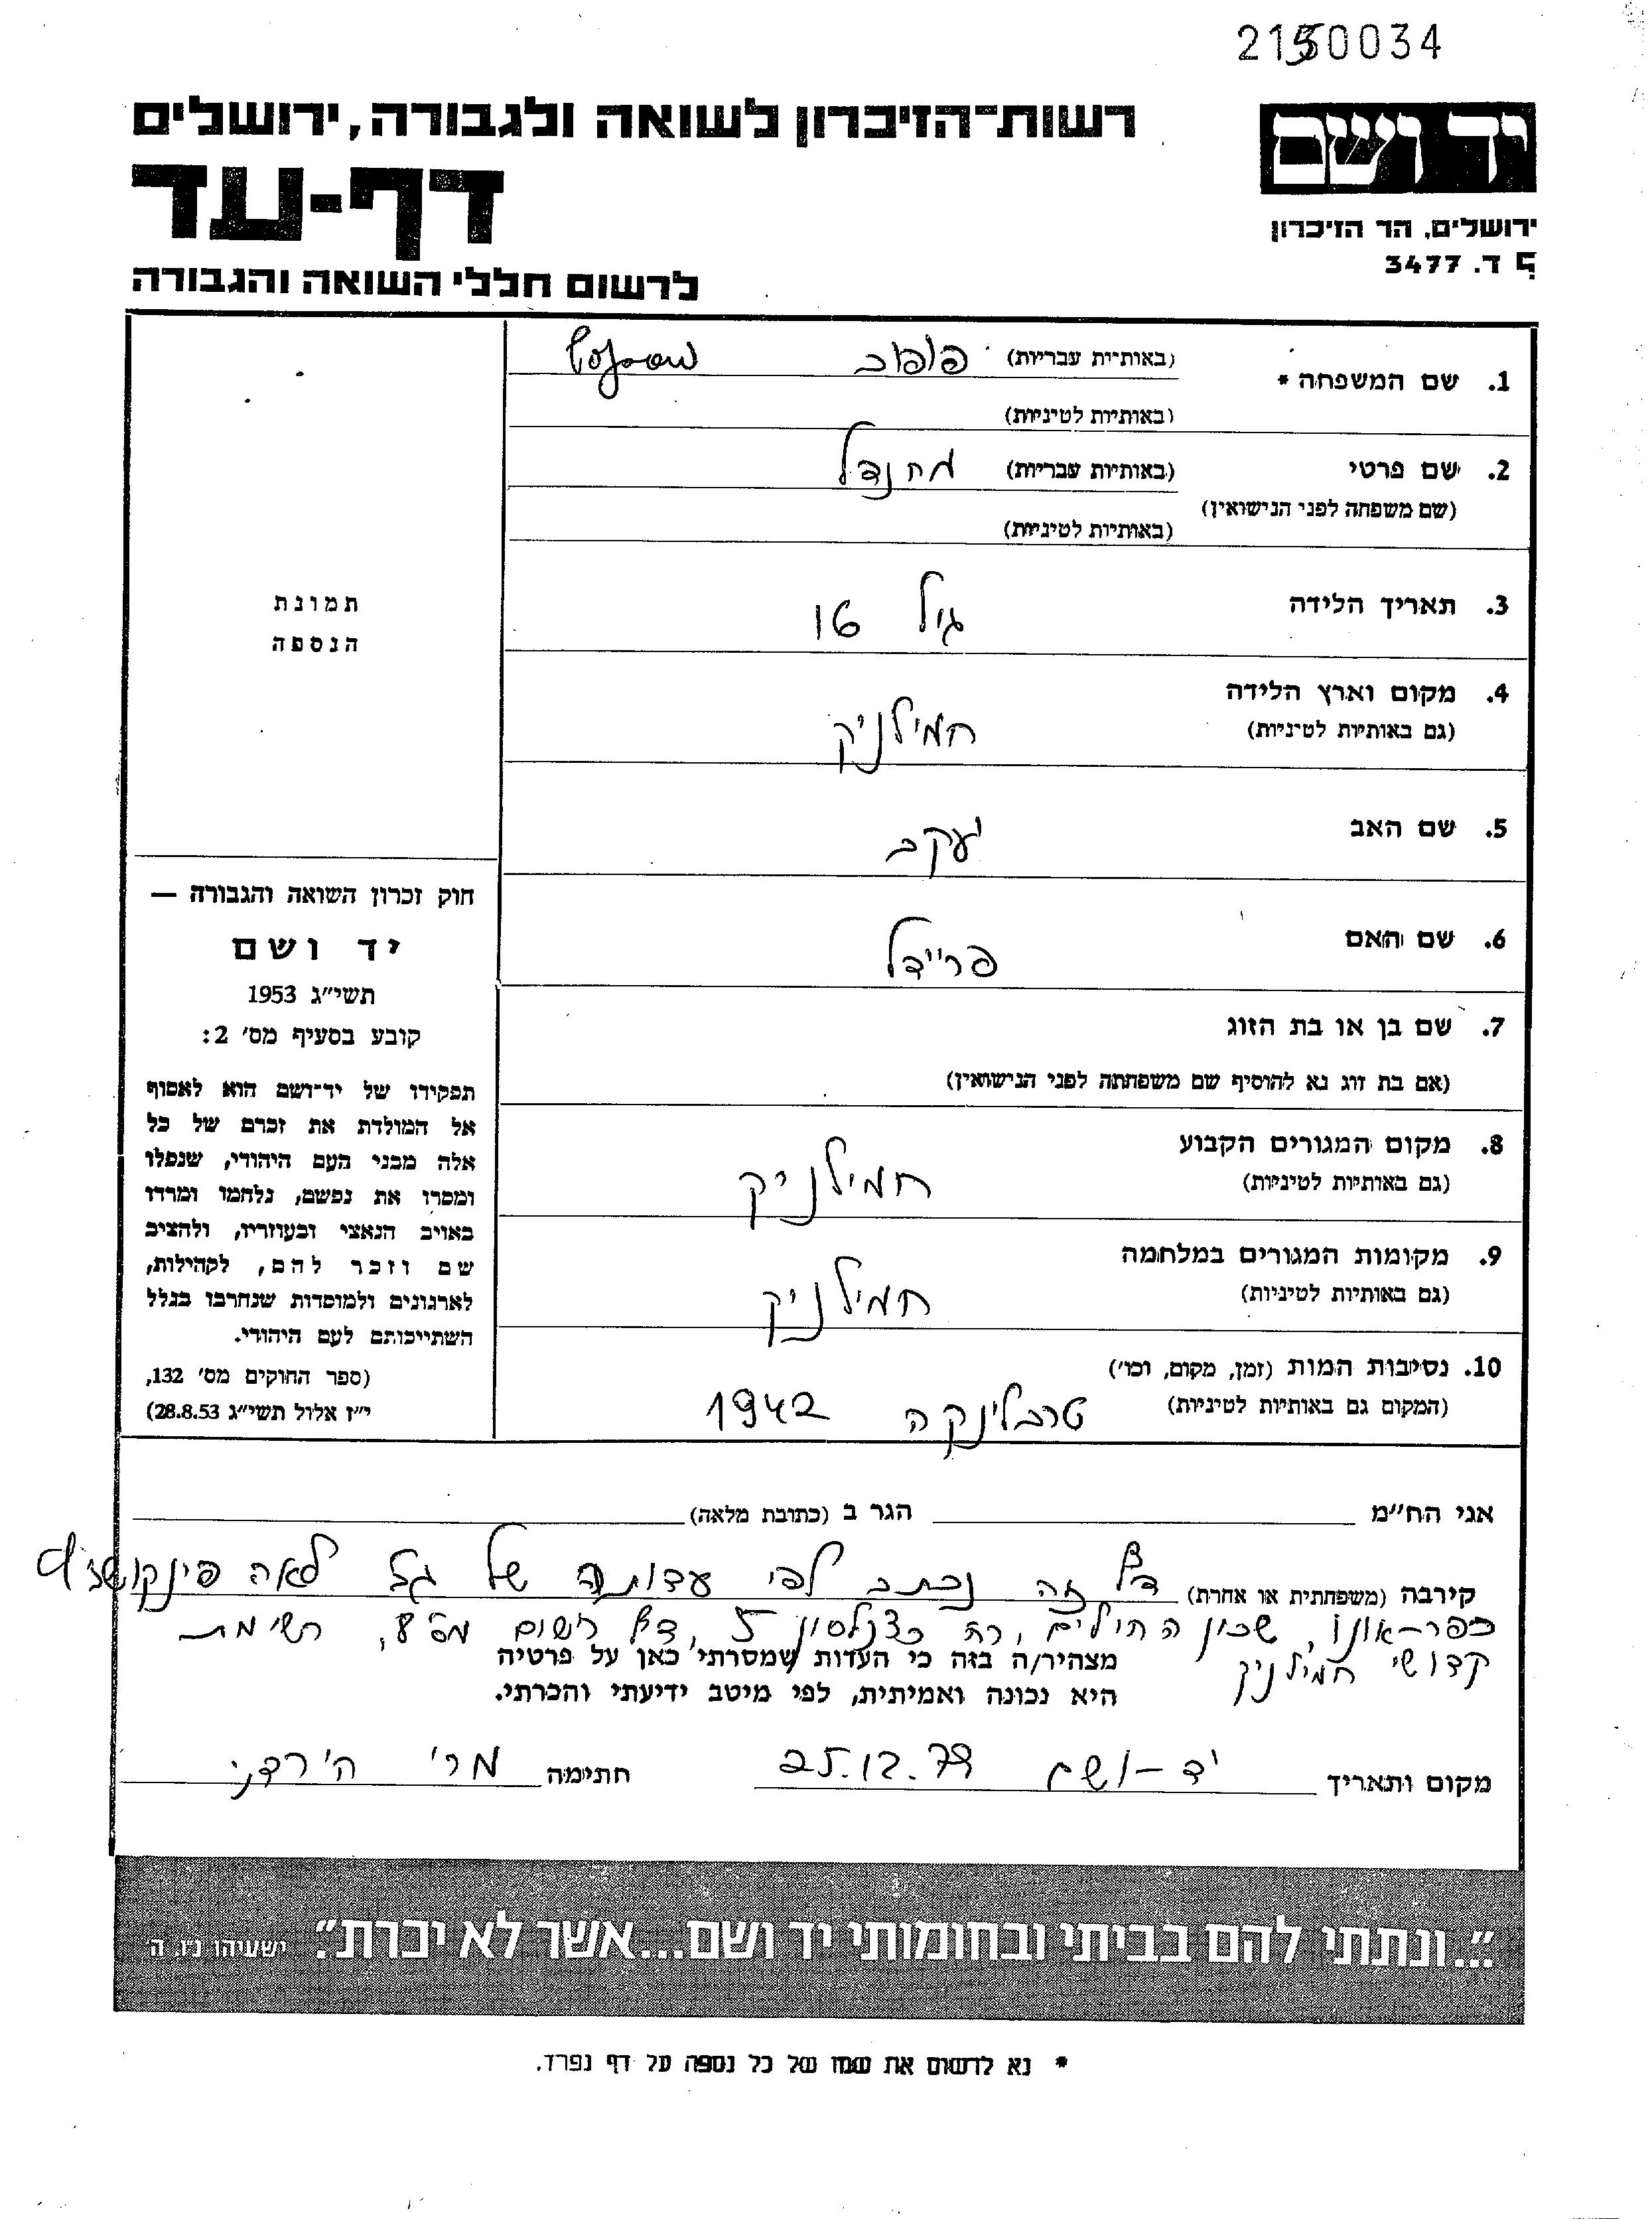 2150034
רשות־הזיכרון לשואה ולגבורה, ירושלים
יד ושם
דף-עד
ירושלים, הר הזיכרון
ת ד. 3477
לרשום חללי השואה והגבורה
1. שם המשפחה * (באותיות עבריות)
(באותיות לטיניות)
2. שם פרטי (באותיות עבריות) מהנדל
(שם משפחה לפני הנישואין)
(באותיות לטיניות)
3. תאריך הלידה גיל 16
תמונת
הנספה
4. מקום וארץ הלידה חמילניק
(גם באותיות לטיניות)
5. שם האב יעקב
6. שם האם פריידל
7. שם בן או בת הזוג
(אם בת זוג נא להוסיף שם משפחתה לפני הנישואין)
8. מקום המגורים הקבוע חמילניק
(גם באותיות לטיניות)
9. מקומות המגורים במלחמה חמילניק
(גם באותיות לטיניות)
10. נסיבות המות (זמן, מקום, וכו')
(המקום גם באותיות לטיניות) טרבלינקה 1942
חוק זכרון השואה והגבורה —
יד ושם
תשי״ג 1953
קובע בסעיף מס' 2:
תפקידו של יד־ושם הוא לאסוף
אל המולדת את זכרם של כל
אלה מבני העם היהודי, שנפלו
ומסרו את נפשם, נלחמו ומרדו
באויב הנאצי ובעוזריו, ולהציב
שם וזכר להם, לקהילות,
לארגונים ולמוסדות שנחרבו בגלל
השתייכותם לעם היהודי.
(ספר החוקים מס' 132,
י״ז אלול תשי״ג 28.8.53)
אני הח״מ הגר ב (כתובת מלאה)
קירבה (משפחתית או אחרת) דף זה נכתב לפי עדותה של גב לאה
כפר-אונו, שכון החילים, רח כצנלסון 5, דף רישום מס 8, רשימת
קדושי חמילניק
מצהיר/ה בזה כי העדות שמסרתי כאן על פרטיה
היא נכונה ואמיתית, לפי מיטב ידיעתי והכרתי.
מקום ותאריך יד-ושם 25.12.79 חתימה מרי הירדני
״...ונתתי להם בביתי ובחומותי יד ושם...אשר לא יכרת״. ישעיהו נ״ו, ה
* נא לרשום את שמו של כל נספה על דף נפרד.